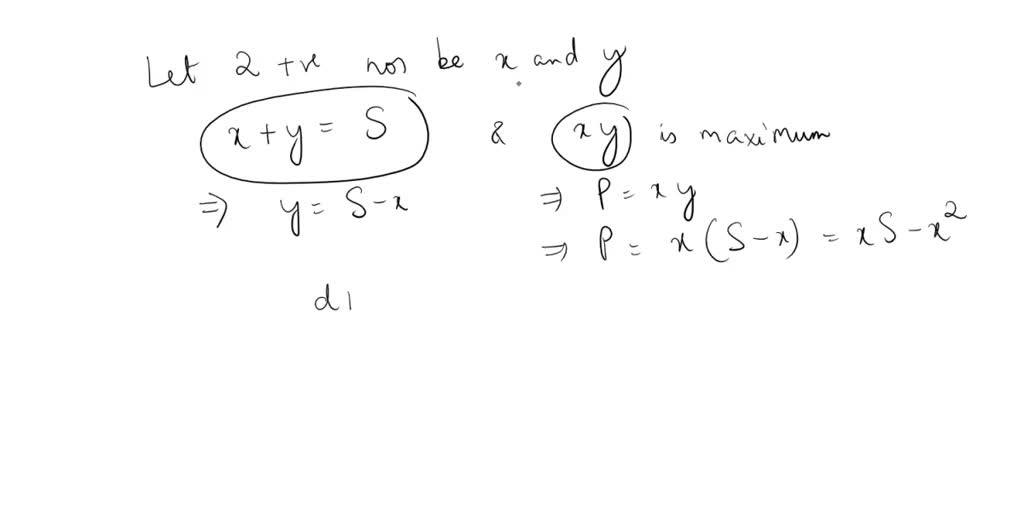 Let 2 +ve nos be x and y
x + y = S & xy is maximum
⇒ y = S - x ⇒ P = xy
⇒ P = x (S - x) = xS - x²
d